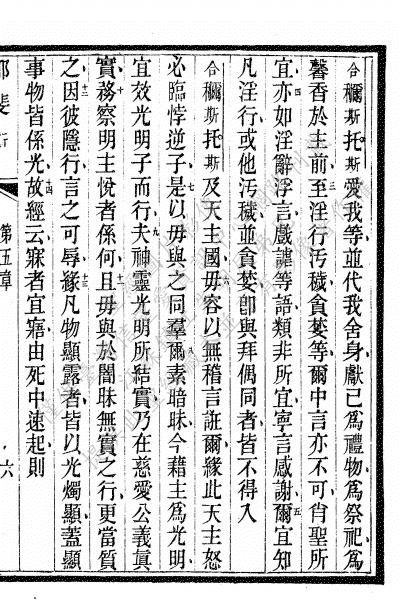 合穪斯托斯愛我等並代我舍身獻已爲禮物爲祭祀爲
馨香於主前至淫行汚穢貪婪等爾中言亦不可肖聖所
宜亦如淫辭浮言戲謔等語類非所宜寧言感謝爾宜知
凡淫行或他汚穢並貪婪卽與拜偶同者皆不得入
合穪斯托斯及天主國毋容以無稽言誑爾緣此天主怒
必臨悖逆子是以毋與之同羣爾素暗昧今藉主爲光明
宜效光明子而行夫神靈光明所結實乃在慈愛公義眞
實務察明主悅者係何且毋與於闇昧無實之行更當質
之因彼隱行言之可辱緣凡物顯露者皆以光燭顯蓋顯
事物皆係光故經云寐者宜寤由死中速起則
第五章
六